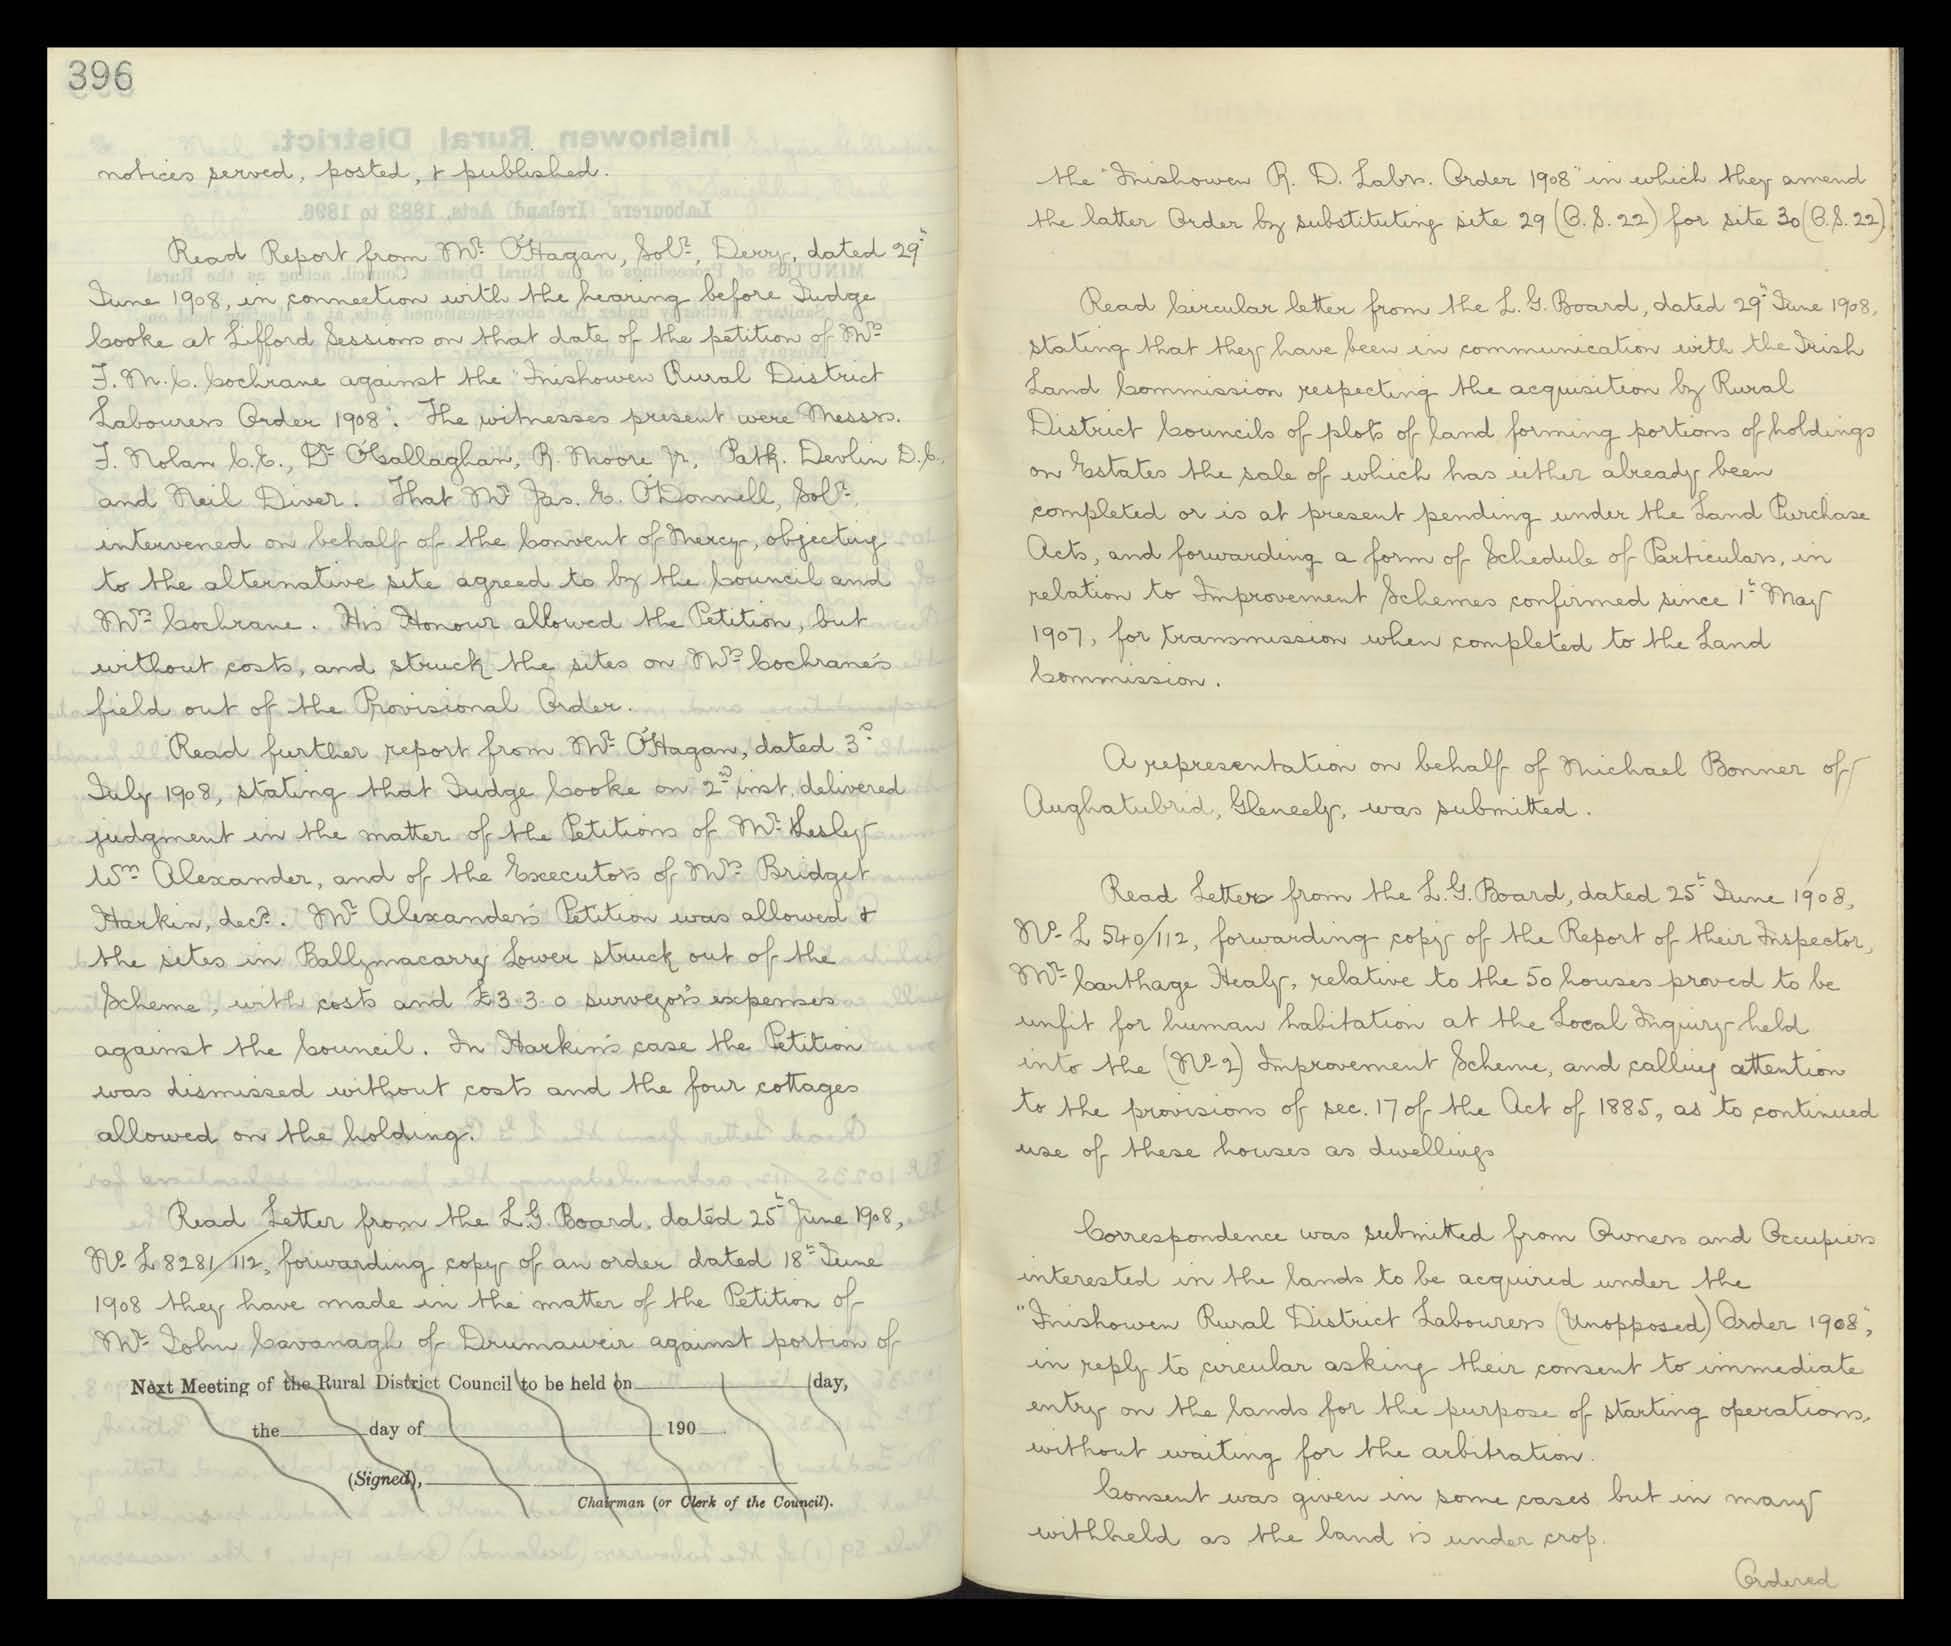 396
notices served, posted, & published.
Read Report from Mr. O'Hagan, Solr., Derry, dated 29th
June 1908, in connection with the hearing before Judge
Cooke at Lifford Sessions on that date of the petition of Mrs
F. M. C. Cochrane against the "Inishowen Rural District
Labourers Order 1908". The witnesses present were Messrs.
J. Nolan C.E., Dr. O'Callaghan, R. Moore Jr, Patk. Devlin D.C.,
and Neil Diver. That Mr Jas. E. O'Donnell, Solr.,
intervened on behalf of the Convent of Mercy, objecting
to the alternative site agreed to by the Council and
Mrs Cochrane. His Honour allowed the Petition, but
without costs, and struck the sites on Mrs Cochrane's
field out of the Provisional Order.
Read further report from Mr. O'Hagan, dated 3rd
July 1908, stating that Judge Cooke on 2nd inst. delivered
judgment in the matter of the Petitions of Mr. Lesley
Wm Alexander, and of the Executors of Mrs Bridget
Harkin, decd. Mr. Alexander's Petition was allowed &
the sites in Ballymacarry Lower struck out of the
Scheme, with costs and £3.3.0 surveyor's expenses
against the Council. In Harkin's case the Petition
was dismissed without costs and the four cottages
allowed on the holding.
Read Letter from the L.G. Board, dated 25th June 1908,
No. L 8281/112, forwarding copy of an order dated 18th June
1908 they have made in the matter of the Petition of
Mr. John Cavanagh of Drumaweir against portion of
Next Meeting of the Rural District Council to be held on day,
the day of 190 .
(Signed),
Chairman (or Clerk of the Council).
the "Inishowen R. D. Labrs. Order 1908" in which they amend
the latter Order by substituting site 29 (O.S. 22) for site 30 (O.S. 22)
Read Circular letter from the L.G. Board, dated 29th June 1908,
stating that they have been in communication with the Irish
Land Commission respecting the acquisition by Rural
District Councils of plots of land forming portions of holdings
on Estates the sale of which has either already been
completed or is at present pending under the Land Purchase
Acts, and forwarding a form of Schedule of Particulars, in
relation to Improvement Schemes confirmed since 1st May
1907, for transmission when completed to the Land
Commission.
A representation on behalf of Michael Bonner of
Aughatubrid, Gleneely, was submitted.
Read Letters from the L.G. Board, dated 25th June 1908,
No. L 540/112, forwarding copy of the Report of their Inspector,
Mr. Carthage Healy, relative to the 50 houses proved to be
unfit for human habitation at the Local Inquiry held
into the (No. 2) Improvement Scheme, and calling attention
to the provisions of sec. 17 of the Act of 1885, as to continued
use of these houses as dwellings
Correspondence was submitted from Owners and Occupiers
interested in the lands to be acquired under the
"Inishowen Rural District Labourers (Unopposed) Order 1908",
in reply to circular asking their consent to immediate
entry on the lands for the purpose of starting operations,
without waiting for the arbitration.
Consent was given in some cases but in many
withheld as the land is under crop.
Ordered